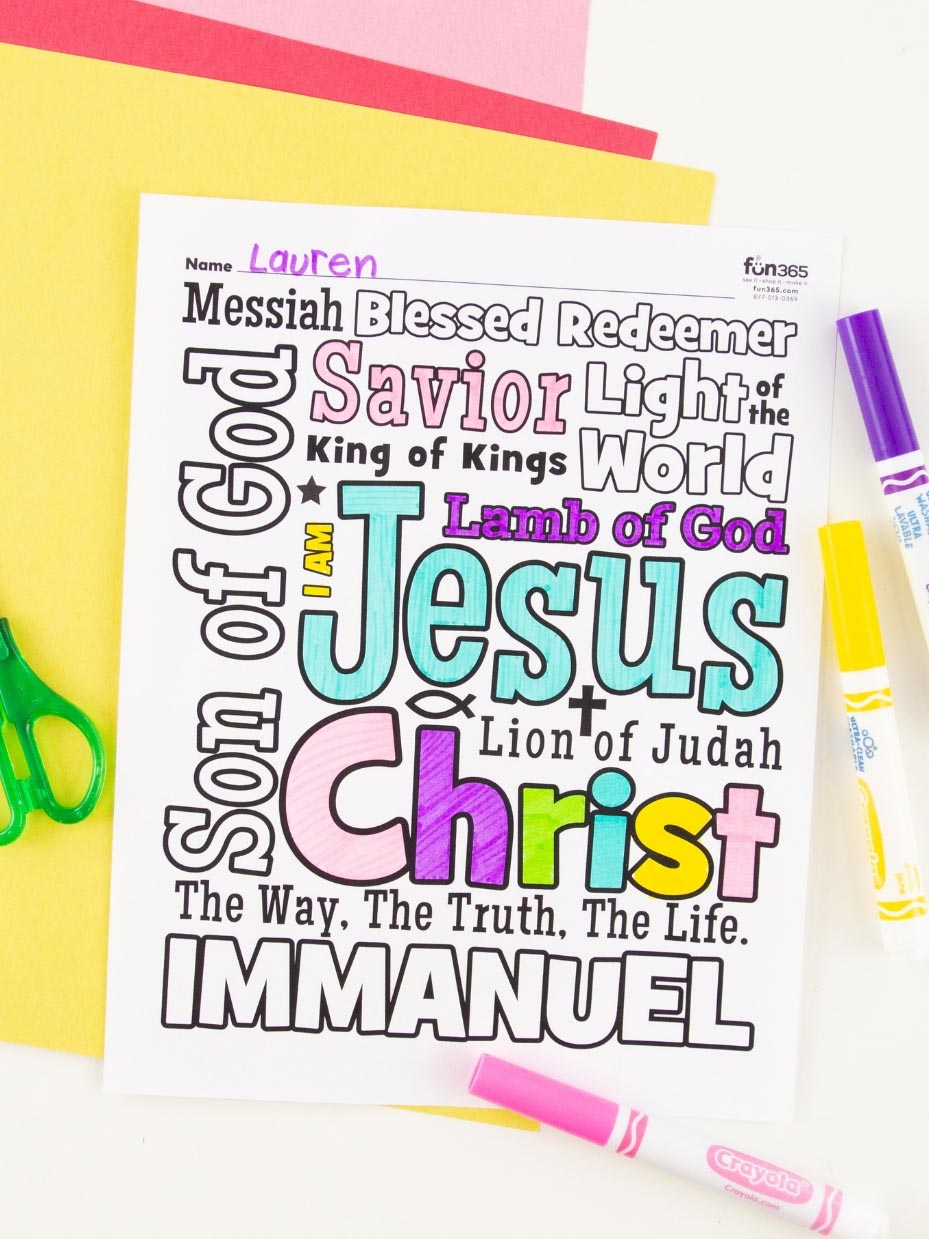 Name Lauren
fun365
see it • shop it • make it
fun365.com
877-513-0369
Messiah Blessed Redeemer
Son of God
Savior
Light of the
World
King of Kings
I AM
Lamb of God
Jesus
Lion of Judah
Christ
The Way, The Truth, The Life.
IMMANUEL
ULTRA-CLEAN
Crayola
Crayola.com